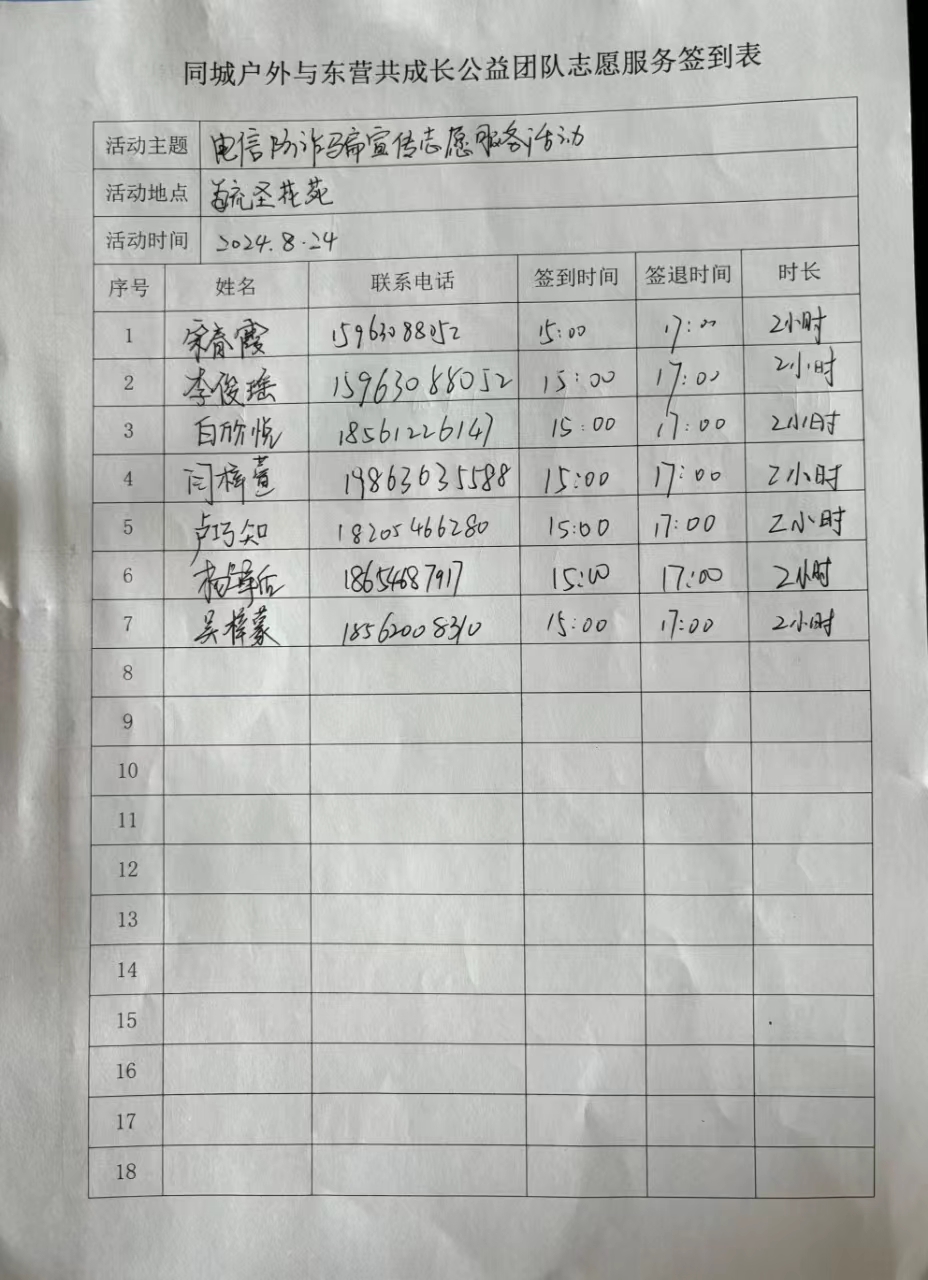 同城户外与东营共成长公益团队志愿服务签到表
活动主题 电信防诈骗宣传志愿服务活动
活动地点 圣花苑
活动时间 2024.8.24
序号 姓名 联系电话 签到时间 签退时间 时长
1 宋春霞 15963088052 15:00 17:00 2小时
2 李俊瑶 15963088052 15:00 17:00 2小时
3 白欣悦 18561226147 15:00 17:00 2小时
4 闫梓萱 19863635588 15:00 17:00 2小时
5 卢巧知 18205466280 15:00 17:00 2小时
6 杨 18654687917 15:00 17:00 2小时
7 吴梓蒙 18562008310 15:00 17:00 2小时
8
9
10
11
12
13
14
15
16
17
18